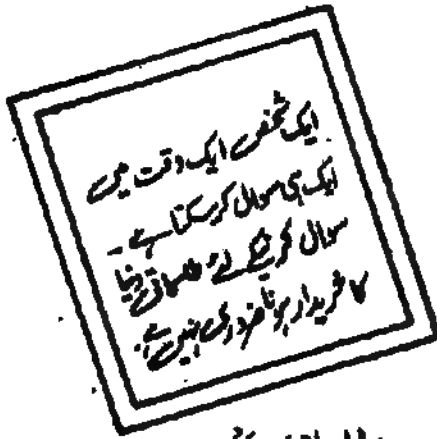 ایک شخص ایک وقت میں
ایک ہی سوال کرسکتا ہے۔
سوال کرنیکے لئے طلسماتی دنیا
کا خریدار ہونا ضروری نہیں ہے۔